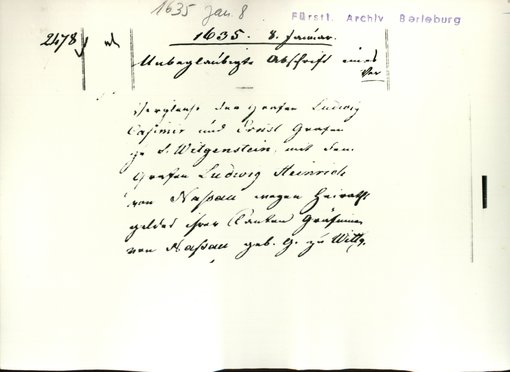 1635 Jan. 8
Fürstl. Archiv Berleburg
2478
1635. 8. Januar.
Unbeglaubigte Abschrift eines
Ver
Vergleichs der Grafen Ludwig
Casimir und Ernst Grafen
zu S. Witgenstein, mit dem
Grafen Ludwig Heinrich
von Naßau wegen Heiraths
geldes ihrer Tanten Gräfinnen
von Naßau geb. G. zu Wittg.